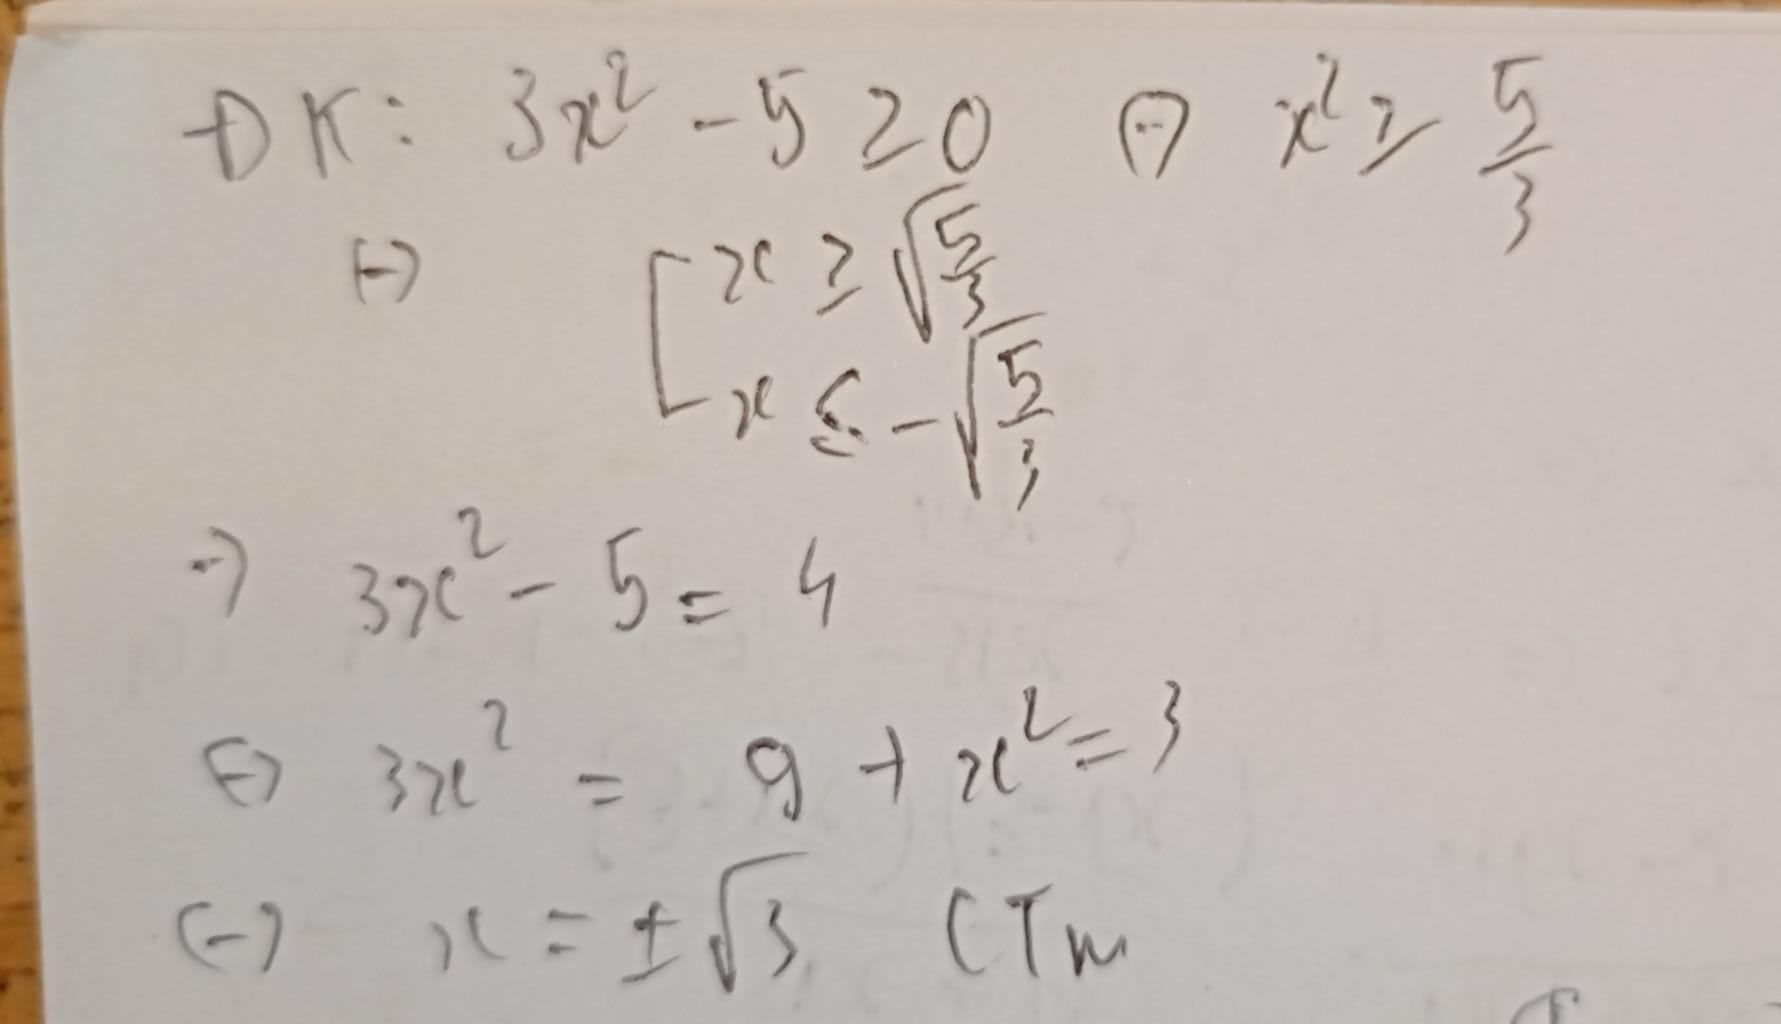 ĐK: 3x² - 5 ≥ 0 ⇔ x² ≥ 5/3
⇔ [ x ≥ √(5/3)
x ≤ -√(5/3)
→ 3x² - 5 = 4
⇔ 3x² = 9 → x² = 3
⇔ x = ±√3 (Tm